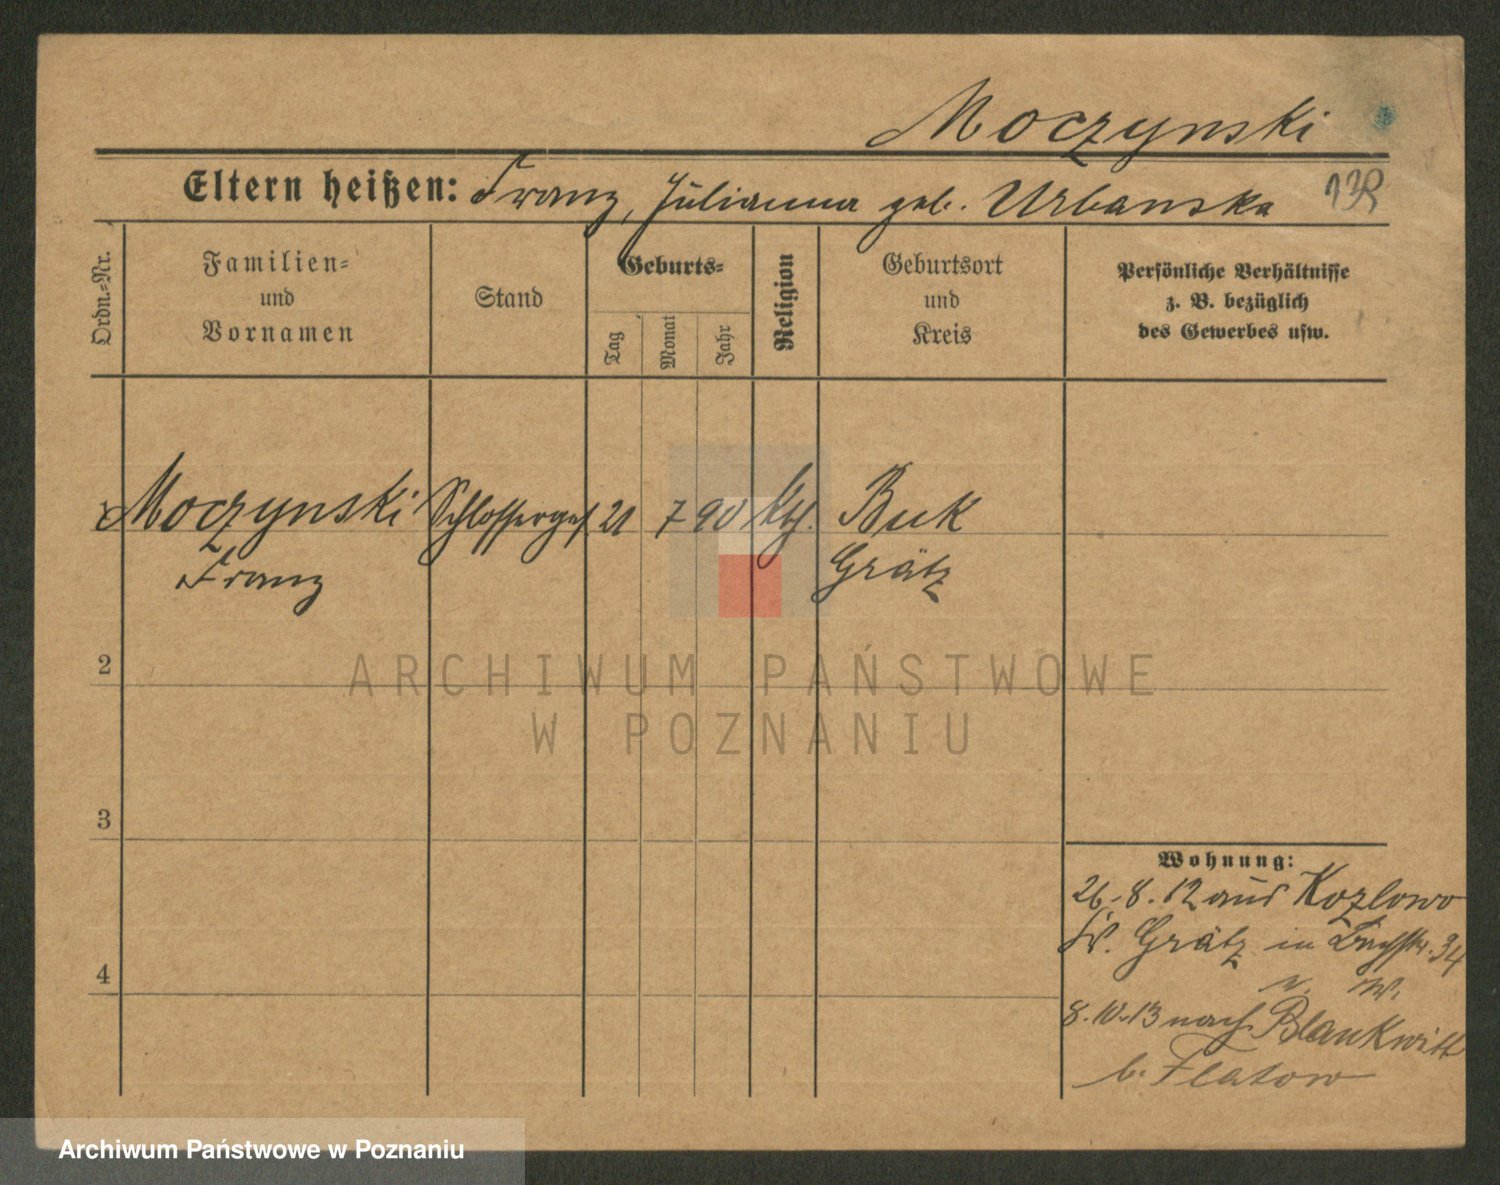 Moczynski
Eltern heißen: Franz, Julianna geb. Urbanska
Ordn.=Nr.
Familien=
und
Vornamen
Stand
Geburts=
Tag
Monat
Jahr
Religion
Geburtsort
und
Kreis
Persönliche Verhältnisse
z. B. bezüglich
des Gewerbes usw.
1 Moczynski Schlosserges 21 7 90 Kth. Buk
Franz Grätz
2
3
4
Wohnung:
26.8.12 aus Kozlowo
Kr. Grätz in
8.10.13 nach Blankwitt
b. Flatow
ARCHIWUM PAŃSTWOWE
W POZNANIU
Archiwum Państwowe w Poznaniu